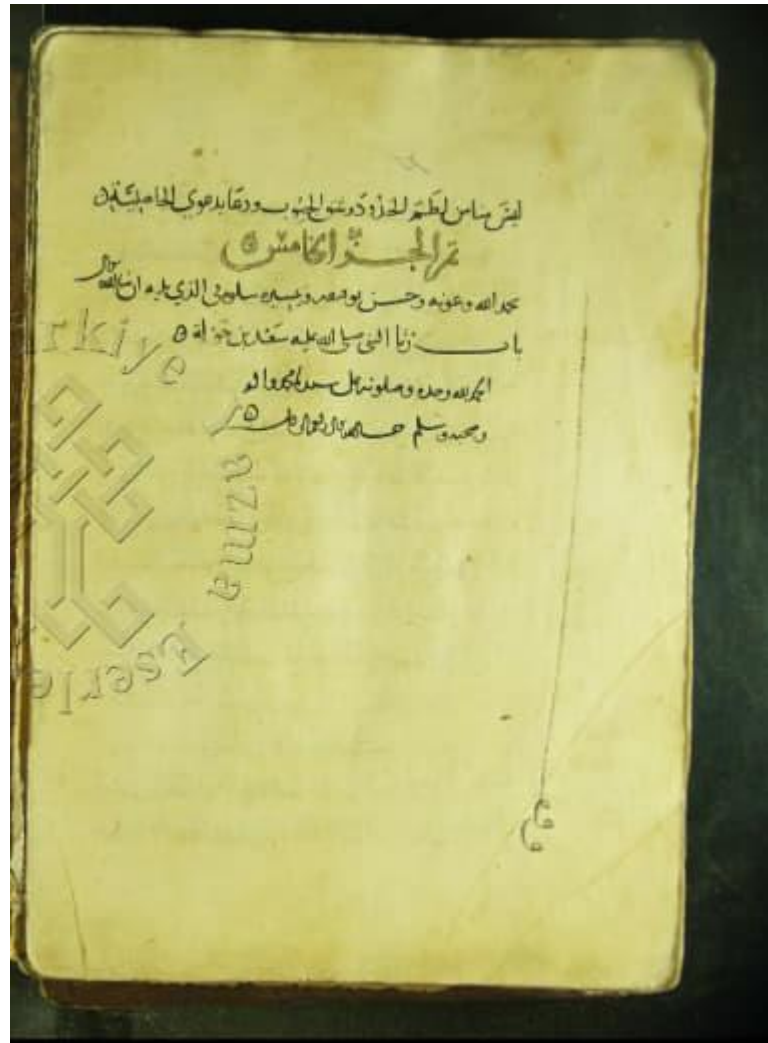 ليس منا من لطم الخدود وشق الجيوب ودعا بدعوى الجاهلية
تم الجزؤ الخامس
بحمد الله وعونه وحسن توفيقه وتيسيره يتلوه في الذي يليه ان شا الله تعالى
باب رثا النبي صلى الله عليه سعد بن خولة
الحمد لله وحده وصلوته على سيدنا محمد واله
وصحبه وسلم حسبنا الله ونعم الوكيل
Türkiye Yazma Eserle